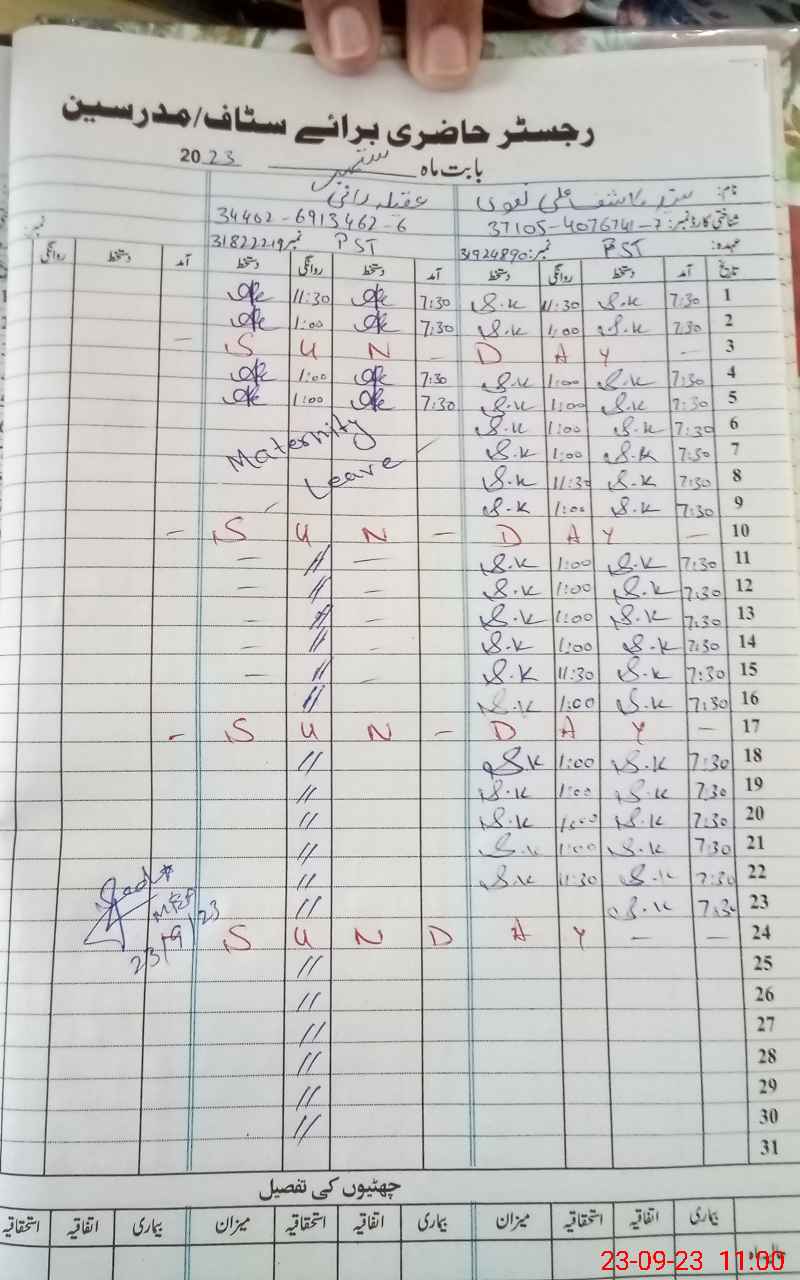 رجسٹر حاضری برائے سٹاف/مدرسین
بابت ماہ ستمبر 2023
نام: سید کاشف علی نقوی عقیلہ رانی
شناختی کارڈ نمبر: 37105-4076741-7 34402-6913462-6
عہدہ: PST نمبر: 31924890 PST نمبر 31822219
نمبر:
تاریخ آمد دستخط روانگی دستخط آمد دستخط روانگی دستخط آمد دستخط روانگی
1 7:30 S.K 11:30 S.K 7:30 11:30
2 7:30 S.K 1:00 S.K 7:30 1:00
3 — S U N — D A Y —
4 7:30 S.K 1:00 S.K 7:30 1:00
5 7:30 S.K 1:00 S.K 7:30 1:00
6 7:30 S.K 1:00 S.K Maternity
7 7:30 S.K 1:00 S.K Leave
8 7:30 S.K 11:30 S.K
9 7:30 S.K 1:00 S.K
10 — S U N — D A Y —
11 7:30 S.K 1:00 S.K — // —
12 7:30 S.K 1:00 S.K — // —
13 7:30 S.K 1:00 S.K — // —
14 7:30 S.K 1:00 S.K — // —
15 7:30 S.K 11:30 S.K — // —
16 7:30 S.K 1:00 S.K //
17 — S U N — D A Y —
18 7:30 S.K 1:00 S.K //
19 7:30 S.K 1:00 S.K //
20 7:30 S.K 1:00 S.K //
21 7:30 S.K 1:00 S.K //
22 7:30 S.K 11:30 S.K //
23 7:30 S.K //
23/9/23
24 S U N D A Y — —
25 //
26 //
27 //
28 //
29 //
30 //
31
چھٹیوں کی تفصیل
بیماری اتفاقیہ استحقاقیہ میزان بیماری اتفاقیہ استحقاقیہ میزان بیماری اتفاقیہ استحقاقیہ
23-09-23 11:00